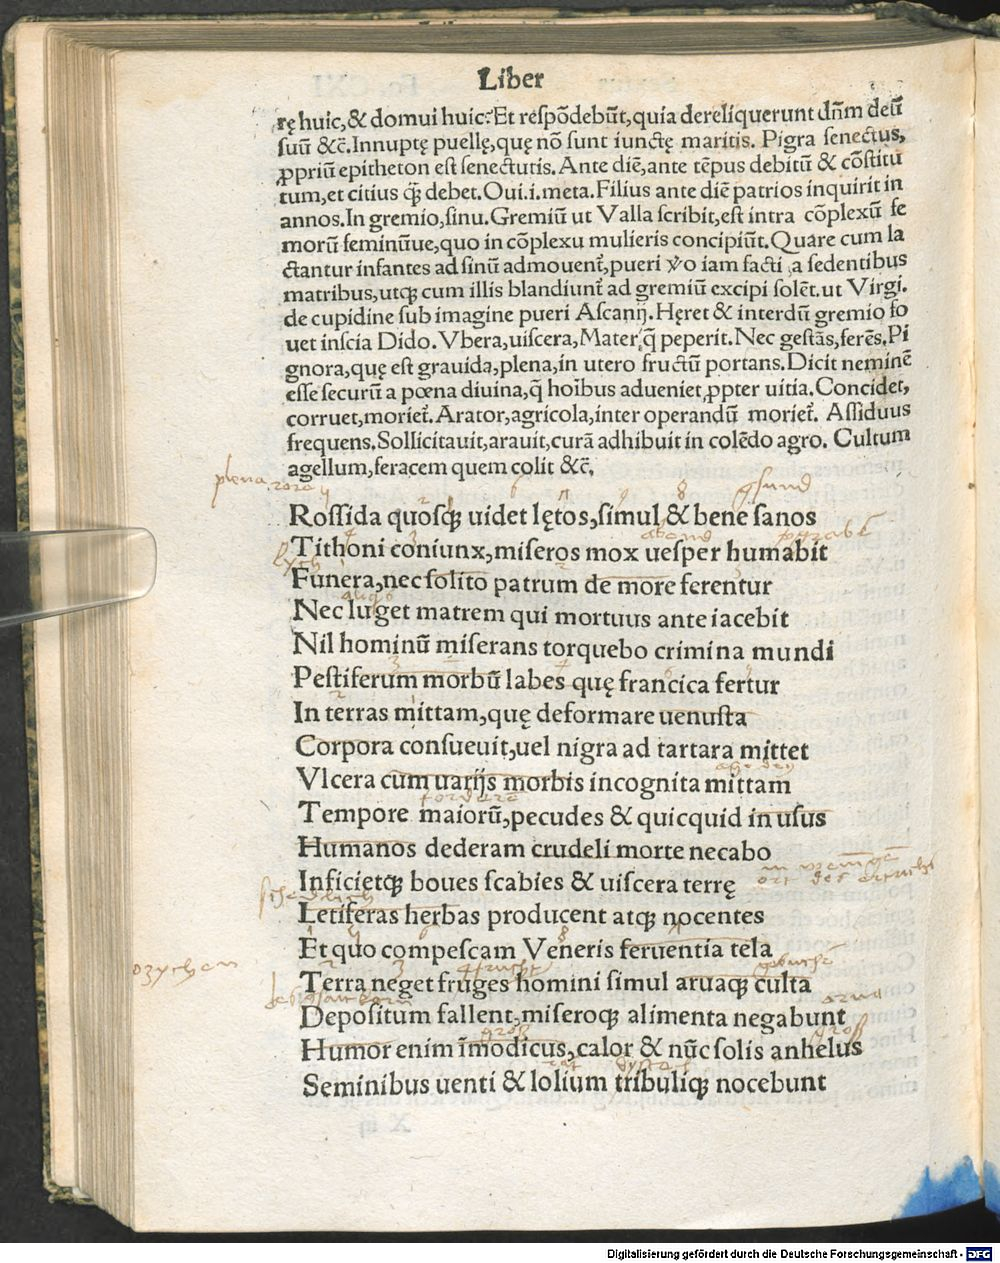 Liber
rę huic,& domui huic? Et respõdebũt,quia dereliquerunt dñm deũ
suũ &c̃.Innuptę puellę,quę nõ sunt iunctę maritis. Pigra senectus,
ꝓpriũ epitheton est senectutis. Ante diẽ,ante tẽpus debitũ & cõstitu
tum,et citius q̃ debet.Oui.i.meta.Filius ante diẽ patrios inquirit in
annos.In gremio,sinu.Gremiũ ut Valla scribit,est intra cõplexũ fe
morũ feminũue,quo in cõplexu mulieris concipiũt.Quare cum la
ctantur infantes ad sinũ admouent᷑,pueri ꝟo iam facti a sedentibus
matribus,utqꝫ cum illis blandiunt᷑ ad gremiũ excipi solẽt.ut Virgi.
de cupidine sub imagine pueri Ascanij.Hęret & interdũ gremio fo
uet inscia Dido.Vbera,uiscera,Mater,q̃ peperit.Nec gestãs,ferẽs.Pi
gnora,quę est grauida,plena,in utero fructũ portans.Dicit neminẽ
esse securũ a pœna diuina,q̃ hoĩbus adueniet,ꝓpter uitia.Concidet,
corruet,moriet᷑.Arator,agricola,inter operandũ moriet᷑. Assiduus
frequens.Sollicitauit,arauit,curã adhibuit in colẽdo agro. Cultum
agellum,feracem quem colit &c̃.
gsund
Roscida quosqꝫ uidet lętos,simul & bene sanos
Tithoni coniunx,miseros mox uesper humabit
Funera,nec solito patrum de more ferentur
Nec luget matrem qui mortuus ante iacebit
Nil hominũ miserans torquebo crimina mundi
Pestiferum morbũ labes quę francica fertur
In terras mittam,quę deformare uenusta
Corpora consueuit,uel nigra ad tartara mittet
Vlcera cum uarijs morbis incognita mittam
Tempore maiorũ,pecudes & quicquid in usus
Humanos dederam crudeli morte necabo
Inficietqꝫ boues scabies & uiscera terrę
Letiferas herbas producent atqꝫ nocentes
Et quo compescam Veneris feruentia tela
Terra neget fruges homini simul aruaqꝫ culta
Depositum fallent,miseroqꝫ alimenta negabunt
groß
Humor enim ĩmodicus,calor & nũc solis anhelus
Seminibus uenti & lolium tribuliqꝫ nocebunt
Digitalisierung gefördert durch die Deutsche Forschungsgemeinschaft - DFG